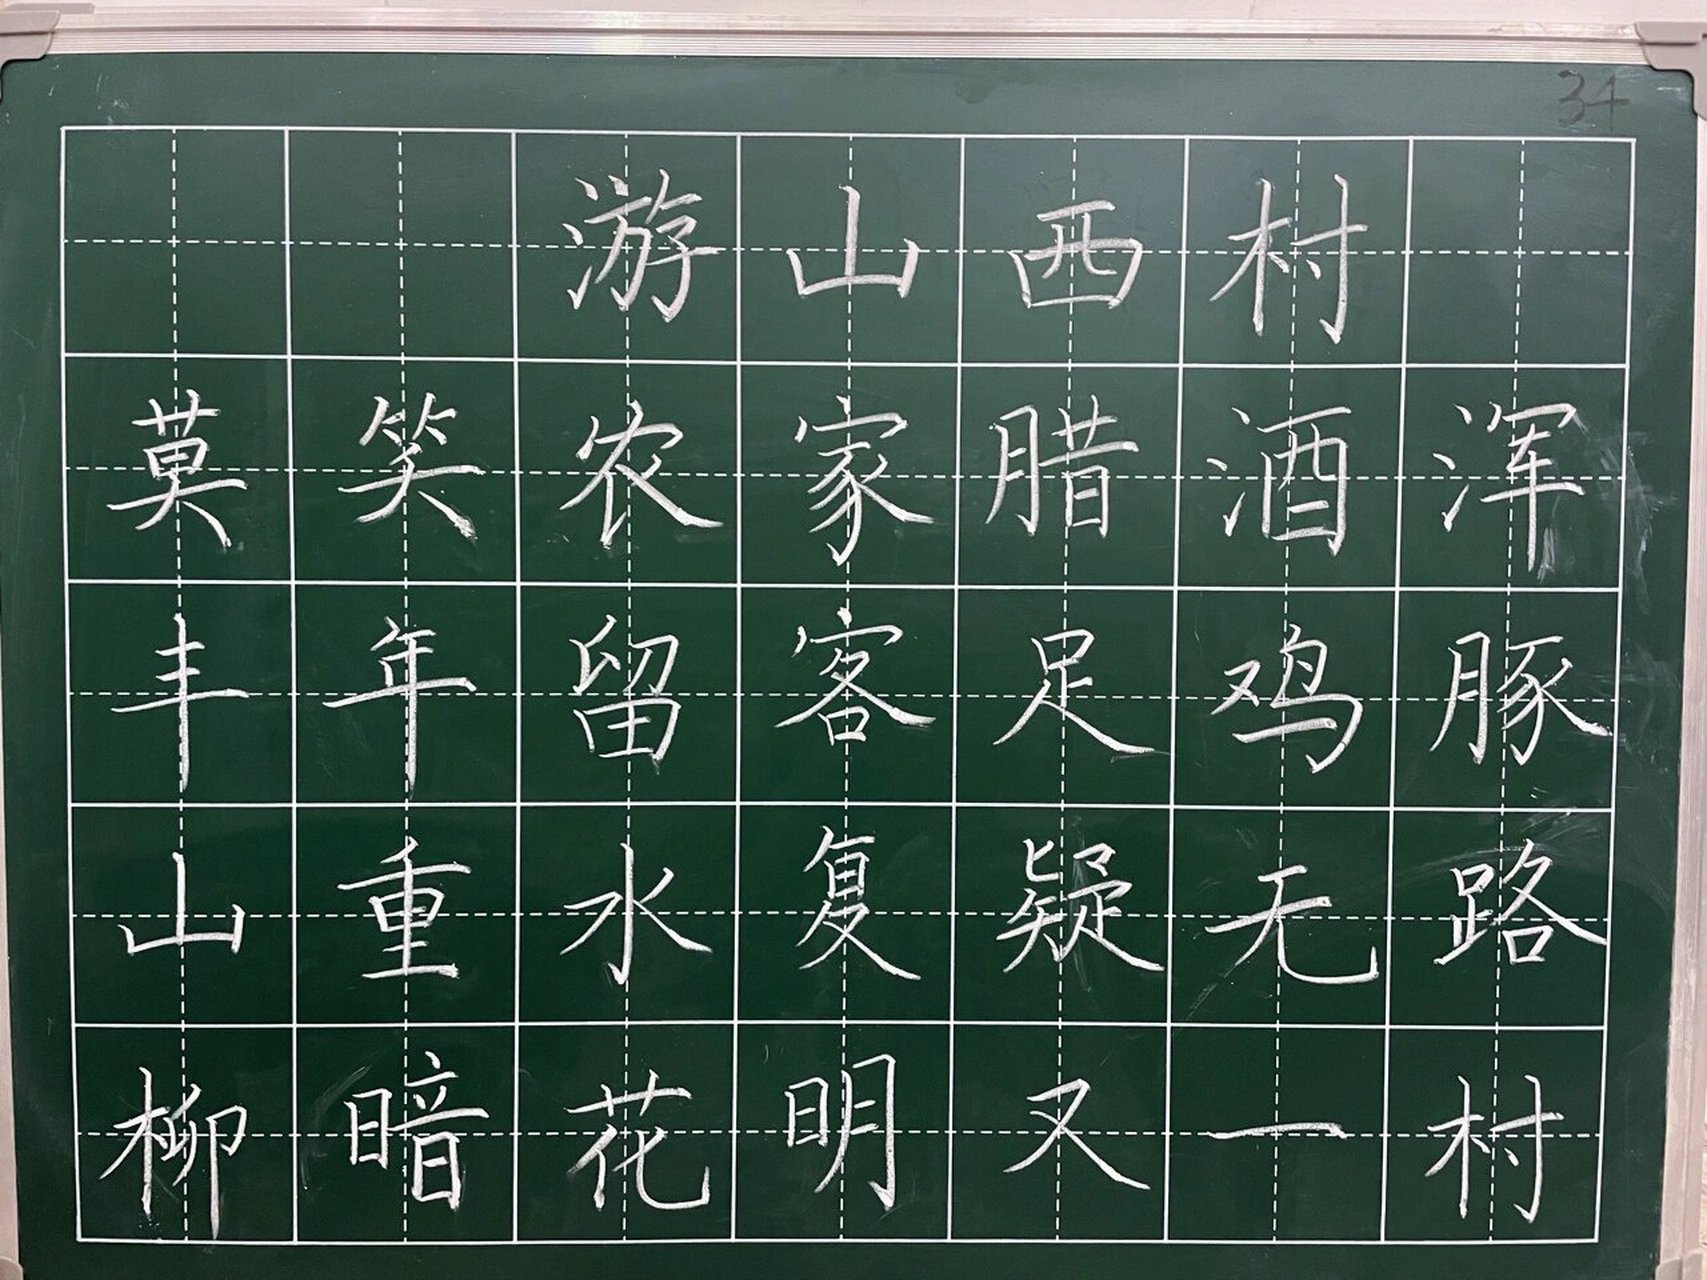 34
游山西村
莫笑农家腊酒浑
丰年留客足鸡豚
山重水复疑无路
柳暗花明又一村